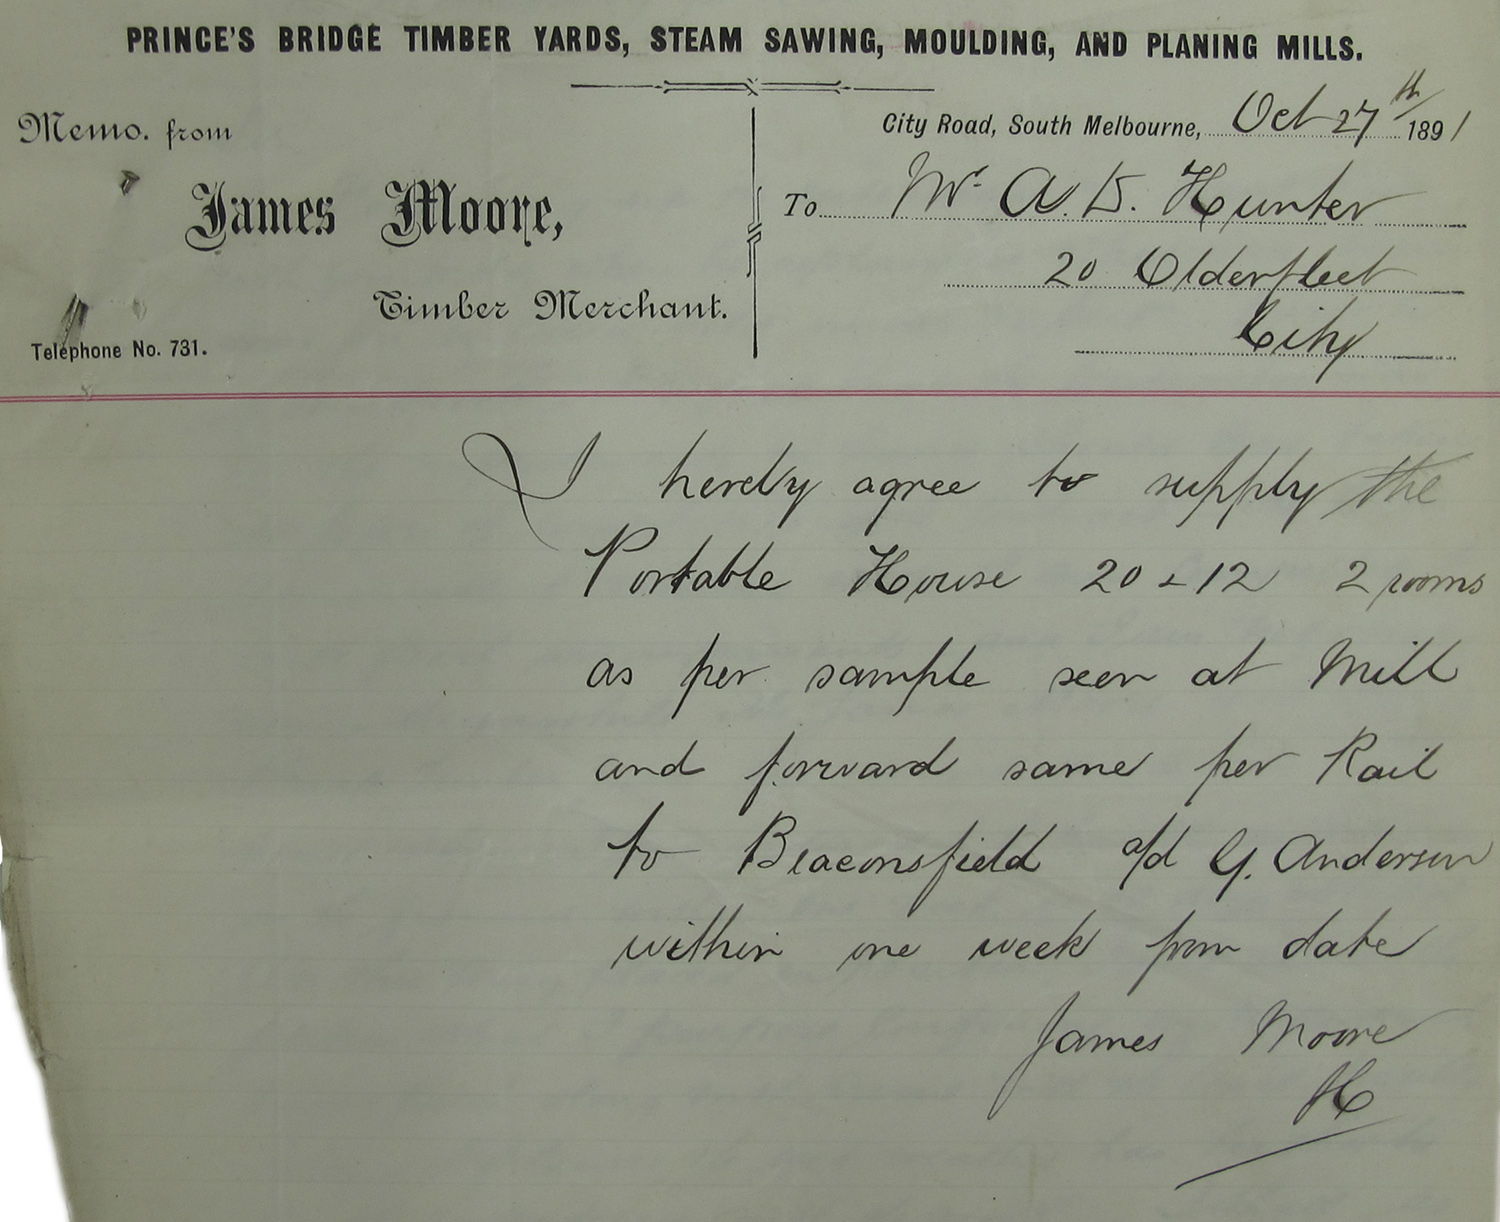 PRINCE'S BRIDGE TIMBER YARDS, STEAM SAWING, MOULDING, AND PLANING MILLS.
Memo. from
James Moore,
Timber Merchant.
Telephone No. 731.
City Road, South Melbourne, Oct 27th 1891
To Mr A. D. Hunter
20 Olderfleet
City
I hereby agree to supply the
Portable House 20 x 12 2 rooms
as per sample seen at Mill
and forward same per Rail
to Beaconsfield a/d G. Anderson
within one week from date
James Moore
H